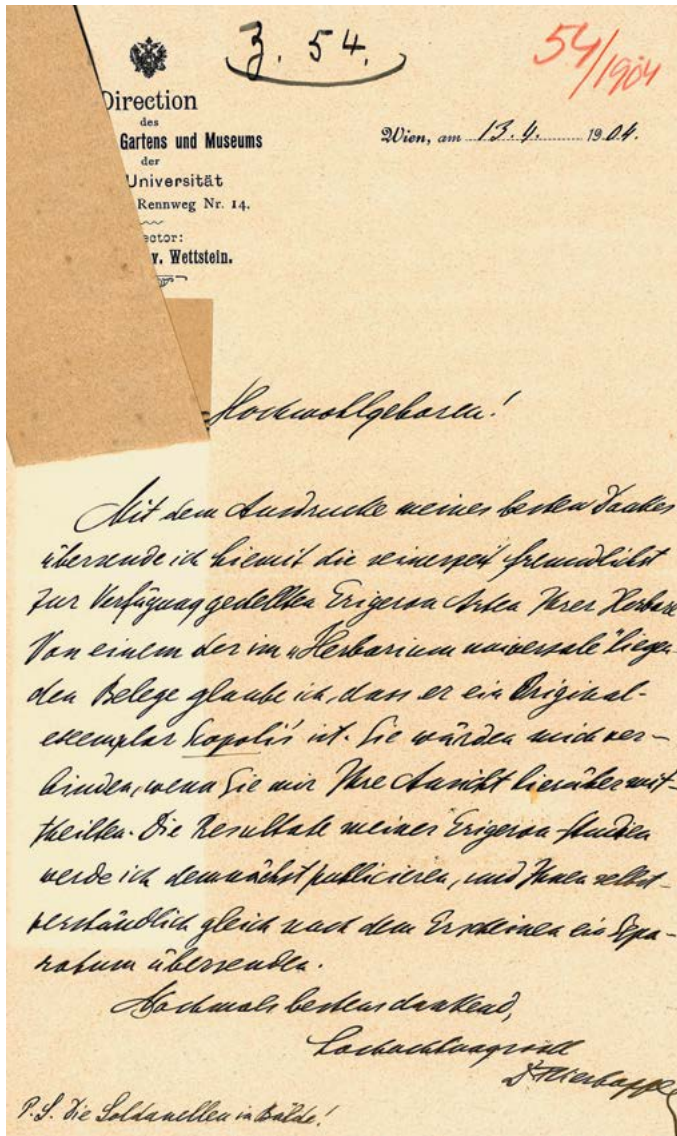 Z. 54.
54/1904
Direction
des
Gartens und Museums
der
Universität
Rennweg Nr. 14.
ector:
v. Wettstein.
Wien, am 13. 4. 1904.
Hochwohlgeboren!
Mit dem Ausdrucke meines besten Dankes
übersende ich hiemit die seinerzeit freundlichst
zur Verfügung gestellten Erigeron Arten Ihres Herbars
Von einem der im „Herbarium universale“ liegen-
den Belege glaube ich, dass er ein Original-
exemplar Scopoli's ist. Sie würden mich ver-
binden, wenn Sie mir Ihre Ansicht hierüber mit-
theilten. Die Resultate meiner Erigeron-Studien
werde ich demnächst publicieren, und Ihnen selbst-
verständlich gleich nach dem Erscheinen ein Sepa-
ratum übersenden.
Nochmals bestens dankend,
hochachtungsvoll
Dr Vierhapper
P.S. Die Soldanellen in Bälde!